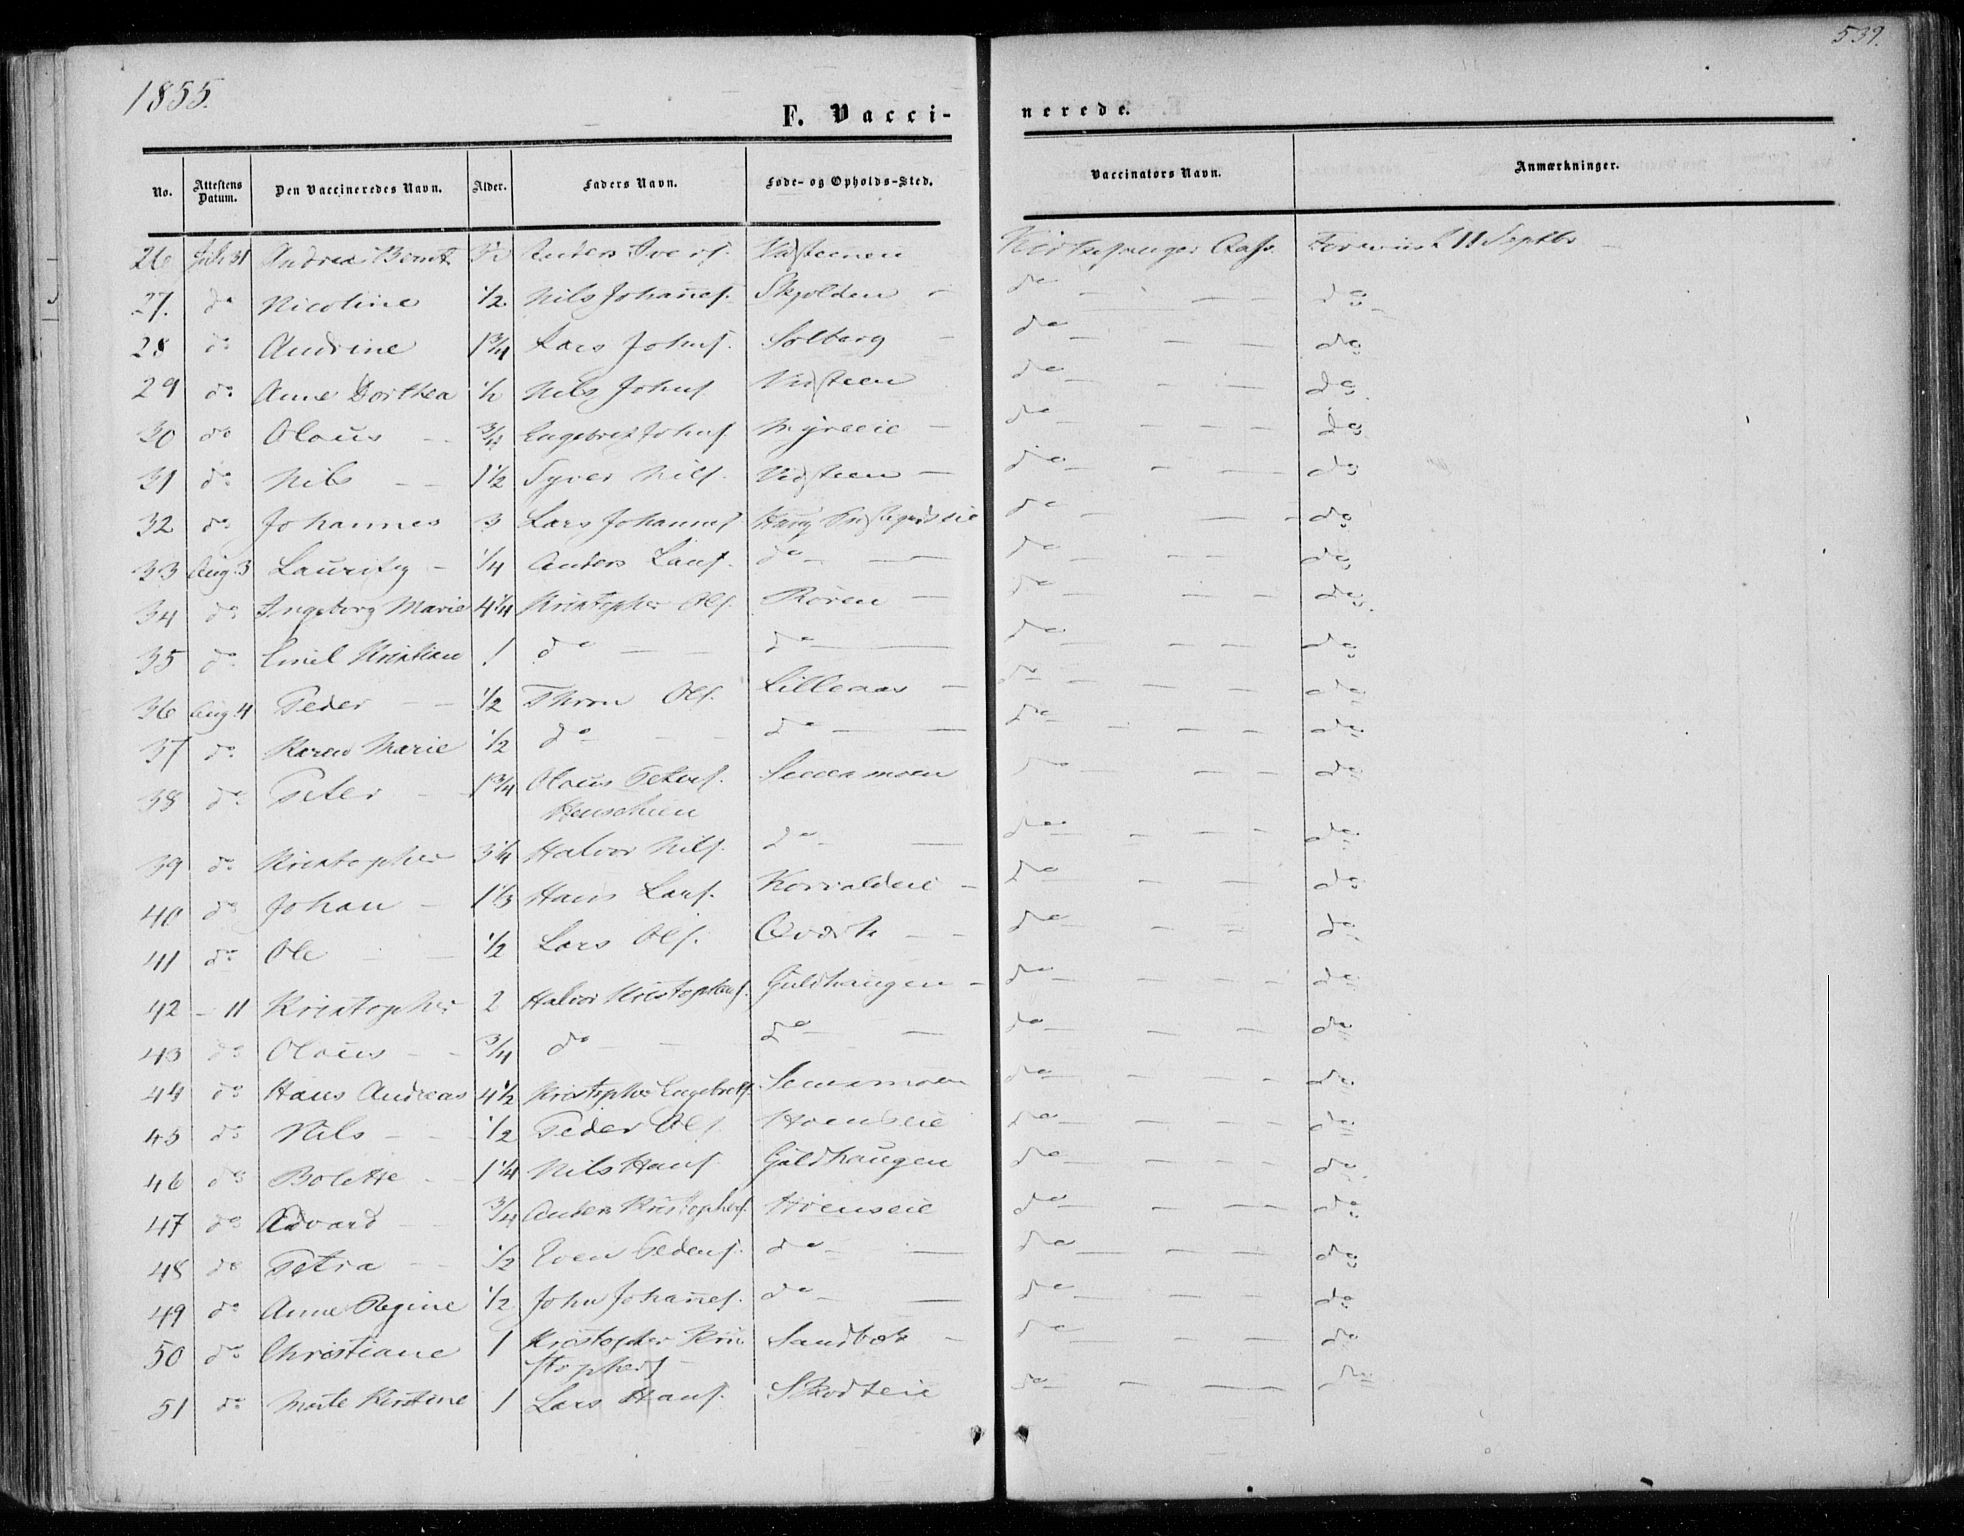 1855.
539.
F. Vacci-
nerede.
No. Attestens Datum. Den Vaccineredes Navn. Alder. Faders Navn. Føde- og Opholds-Sted. Vaccinators Navn. Anmærkninger.
26 Juli 31 Andreas Bernt Anders Ivers. Vidsteenen Kirkesanger Aass Foreviist 11 Septbr
27. do Nicoline 1/2. Nils Johañes. Skjolden - do - - - do
28 do Andrine 1 3/4 Lars Johns. Solberg - do - - - do
29 do Anne Dorthea 1/2 Nils Johns Vidsteen do - - - do
30 do Olaus - - 3/4 Engebret Johns. Myreeie - do - - - do
31 do Nils - - 1 1/2 Syver Nils. Vidsteen - do - - - do
32 do Johannes 3 Lars Johannes do - - - do
33 Aug. 3 Lauritz - 1/4 Anders Lars. do - - do - - - do
34 do Ingeborg Marie 4 1/4 Kristopher Ols. Røren - do - - - do
35 do Emil Kristian 1 do - - do - do - - - do
36 Aug. 4 Peder - - 1/2 Thron Ols. Lilleaas - do - - - do
37 do Karen Marie 1/2 do - - do - - do - - - do
38 do Peter - - 1 3/4 Olaus Peters. moen do - - do
Henschien
39 do Kristopher 3 1/4 Halvor Nils. do - do - - - do
40 do Johan - 1 1/3 Hans Lars. Korvaldeie - do - - - do
41 do Ole - - 1/2 Lars Ols. Qværk - - do - - - do
42 - 11 Kristopher 2 Halvor Kristophers. Guldhaugen - do - - - do
43 do Olaus - - 3/4 do - - do - - do - - - do
44 do Hans Andreas 4 1/2 Kristopher Engebrets. moen do - - - do
45 do Nils - - 1/2 Peder Ols. Hoenseie do - - - do
46 do Bolette - 1 1/4 Nils Hans. Guldhaugen do - - - do
47 do Edvard - - 3/4 Anders Kristophers. Hoenseie do - - - do
48 do Petra - - 1/2 Even Peders. do - - do - - - do
49 do Anne Regine 1/2 John Johañes. do - - do - - - do
50 do Christiane 1 Kristopher Kri- Sandbæk - do - - - do
stophers -
51 do Marte Kirstine 1 Lars Hans. Skodteie do - - - do